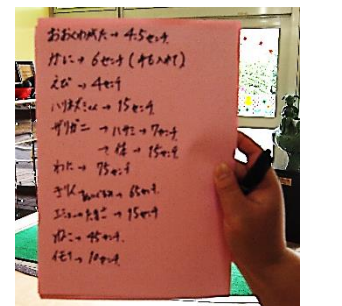 おおくわがた→4.5センチ
かに→6センチ(手も入れて)
えび→4センチ
ハリネズミ→15センチ
ザリガニ→ハサミ→7センチ
→体→15センチ
わに→75センチ
きりん→65センチ
→15センチ
ねこ→45センチ
イモリ→10センチ